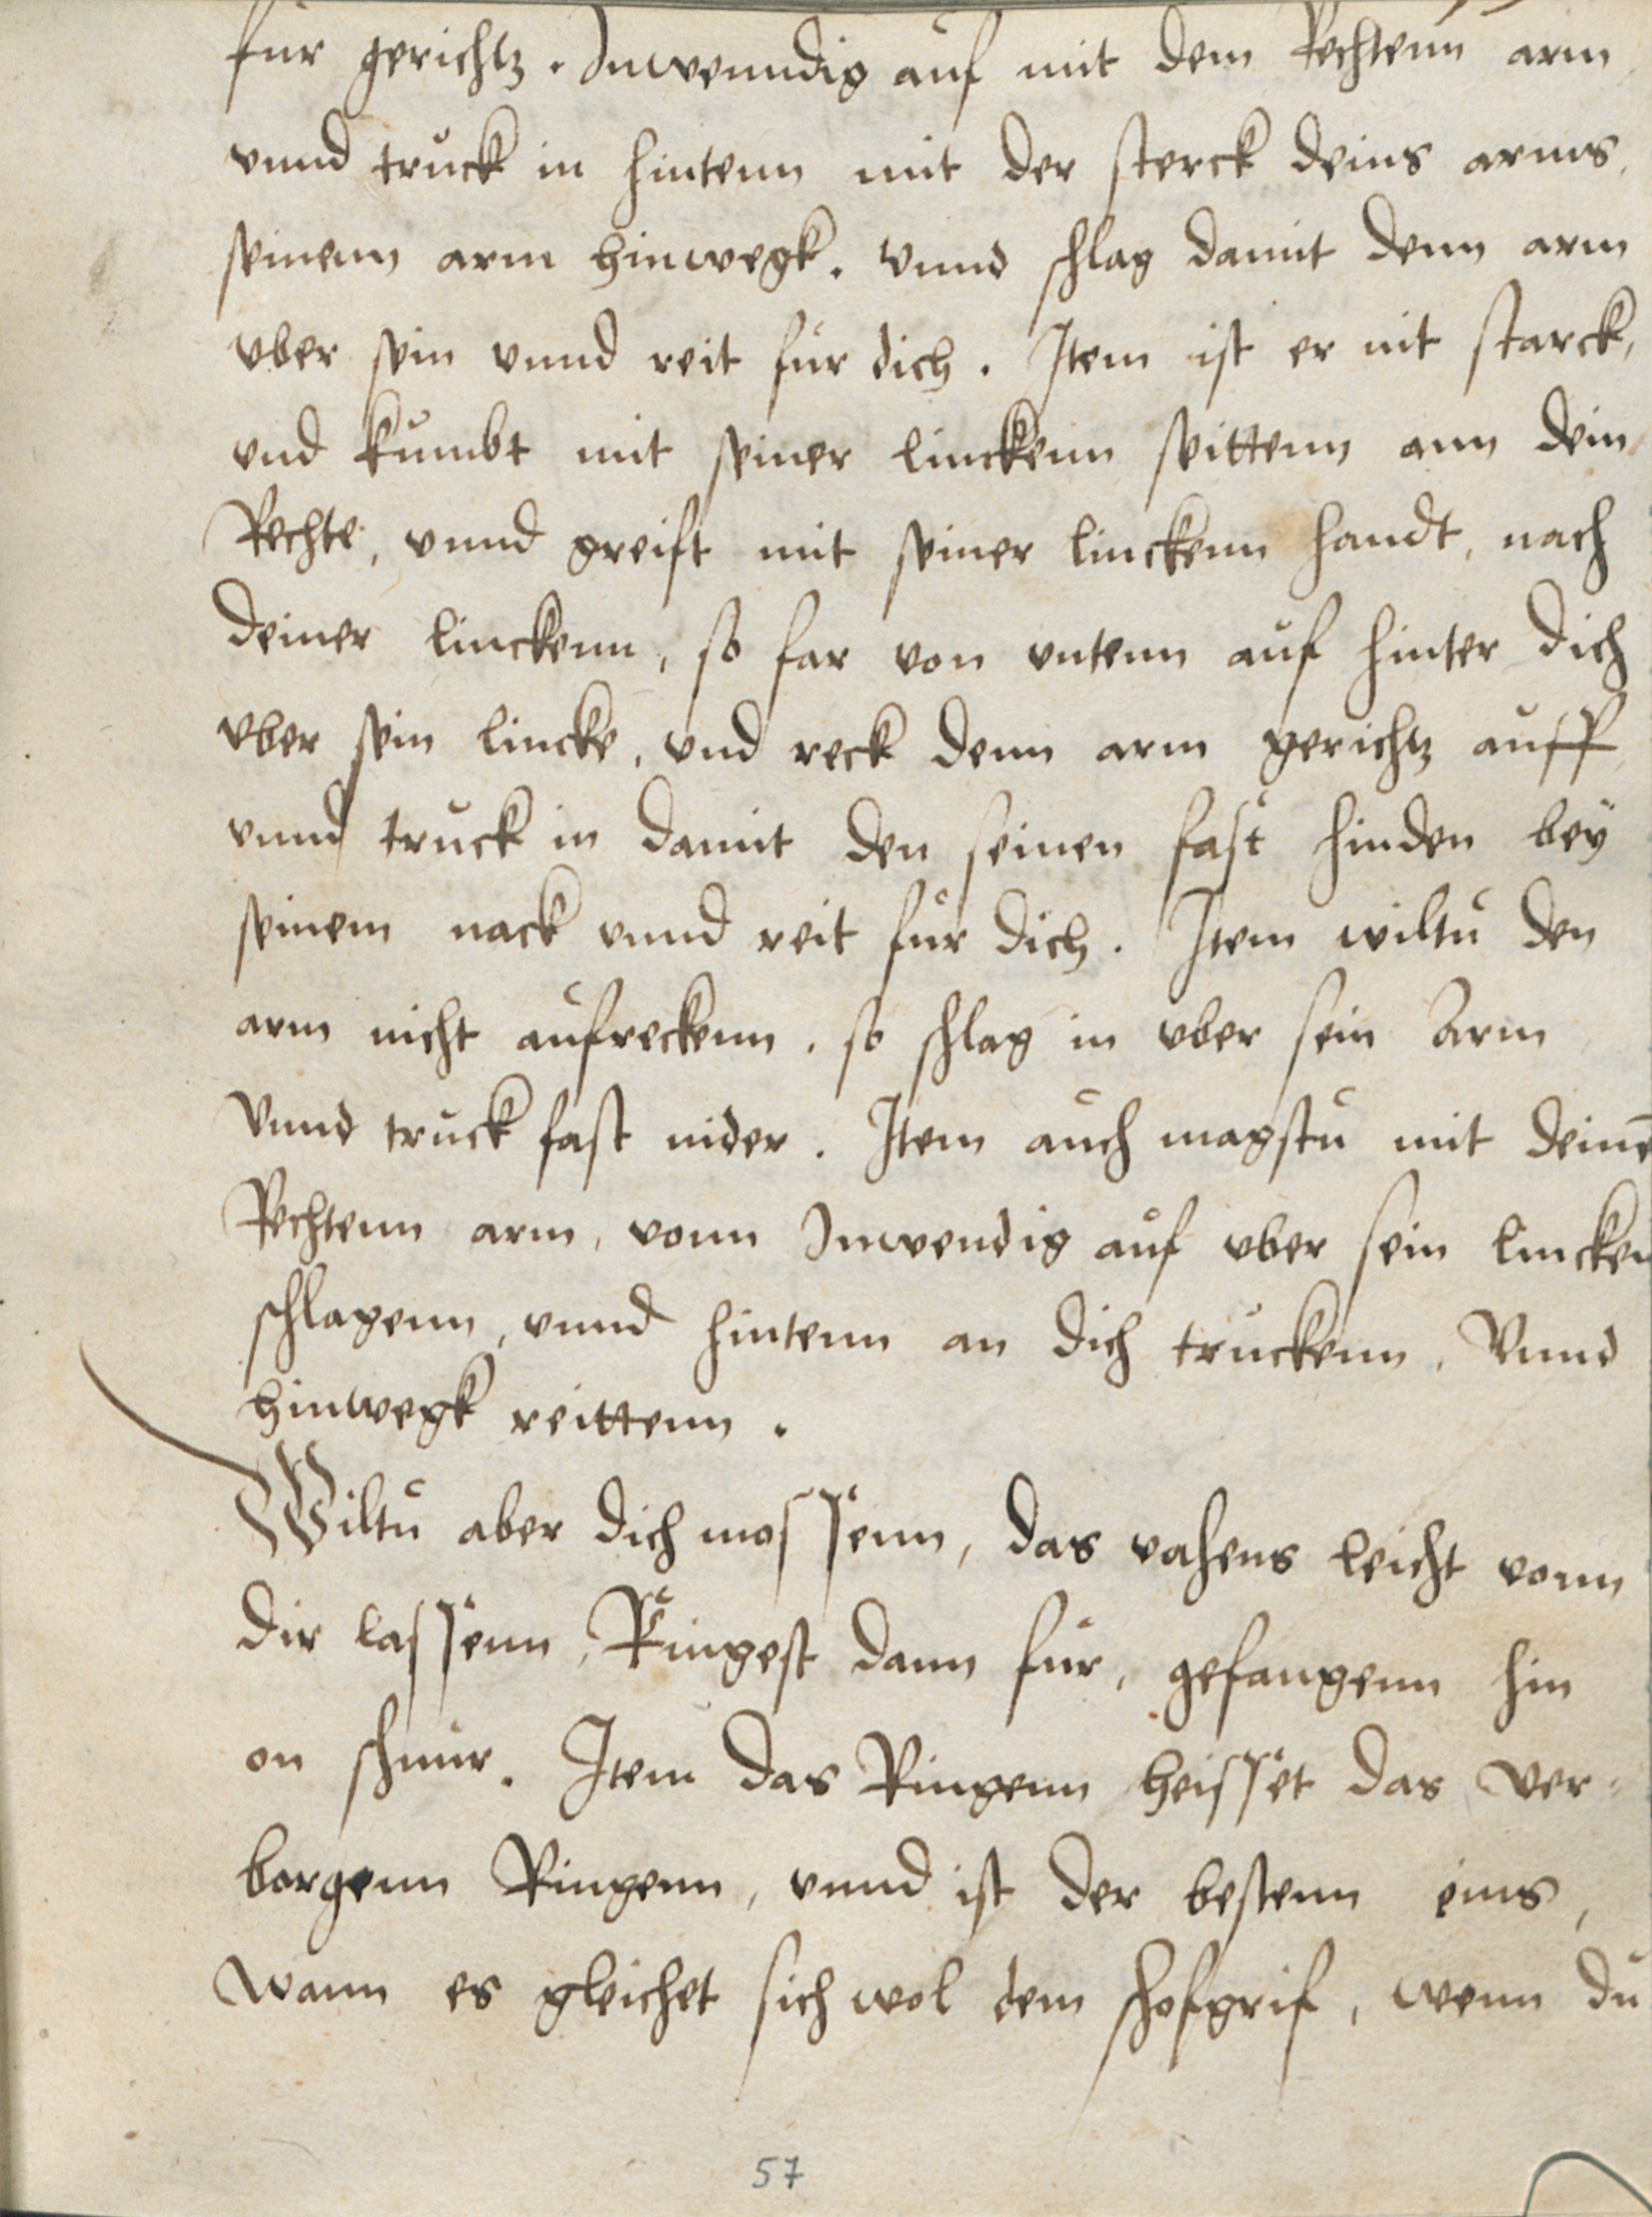 fur gerichtz. Inwenndig auf mit dem Rechtenn arm
vnnd truck in hintenn mit der sterck deins arms,
seinenn arm hinwegk. Vnnd schlag damit denn arm
vber sein vnnd reit fur dich. Item ist er nit starck,
vnd kumbt mit seiner linckenn seittenn ann dein
Rechte, vnnd greift mit seiner linckenn handt, nach
deiner linckenn, so far von vntenn auf hinter dich
vber sein lincke, vnd reck denn arm gerichtz auff
vnnd truck in damit den seinen fast hinden bey
seinem nack vnnd reit fur dich. Item wiltu den
arm nicht aufreckenn, so schlag in vber sein Arm
Vnnd truck fast nider. Item auch magstu mit deinē
Rechtenn arm, vonn Inwendig auf vber sein lincken
schlagenn, vnnd hintenn an dich truckenn, Vnnd
hinwegk reittenn.
Wiltu aber dich massenn, das vahens leicht vonn
dir lassenn, Ringest dann fur, gefangenn hin
on schnur. Item das Ringenn heisset das Ver-
borgenn Ringenn, vnnd ist der bestenn eins,
wann es gleichet sich wol dem schofgrif, wenn du
57